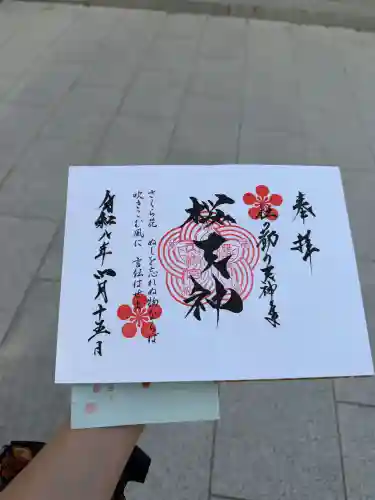 奉拝
桜天神
さくら花 ぬしを忘れぬ物ならば
吹きこむ風に 言伝はせよ
令和七年 六月十五日